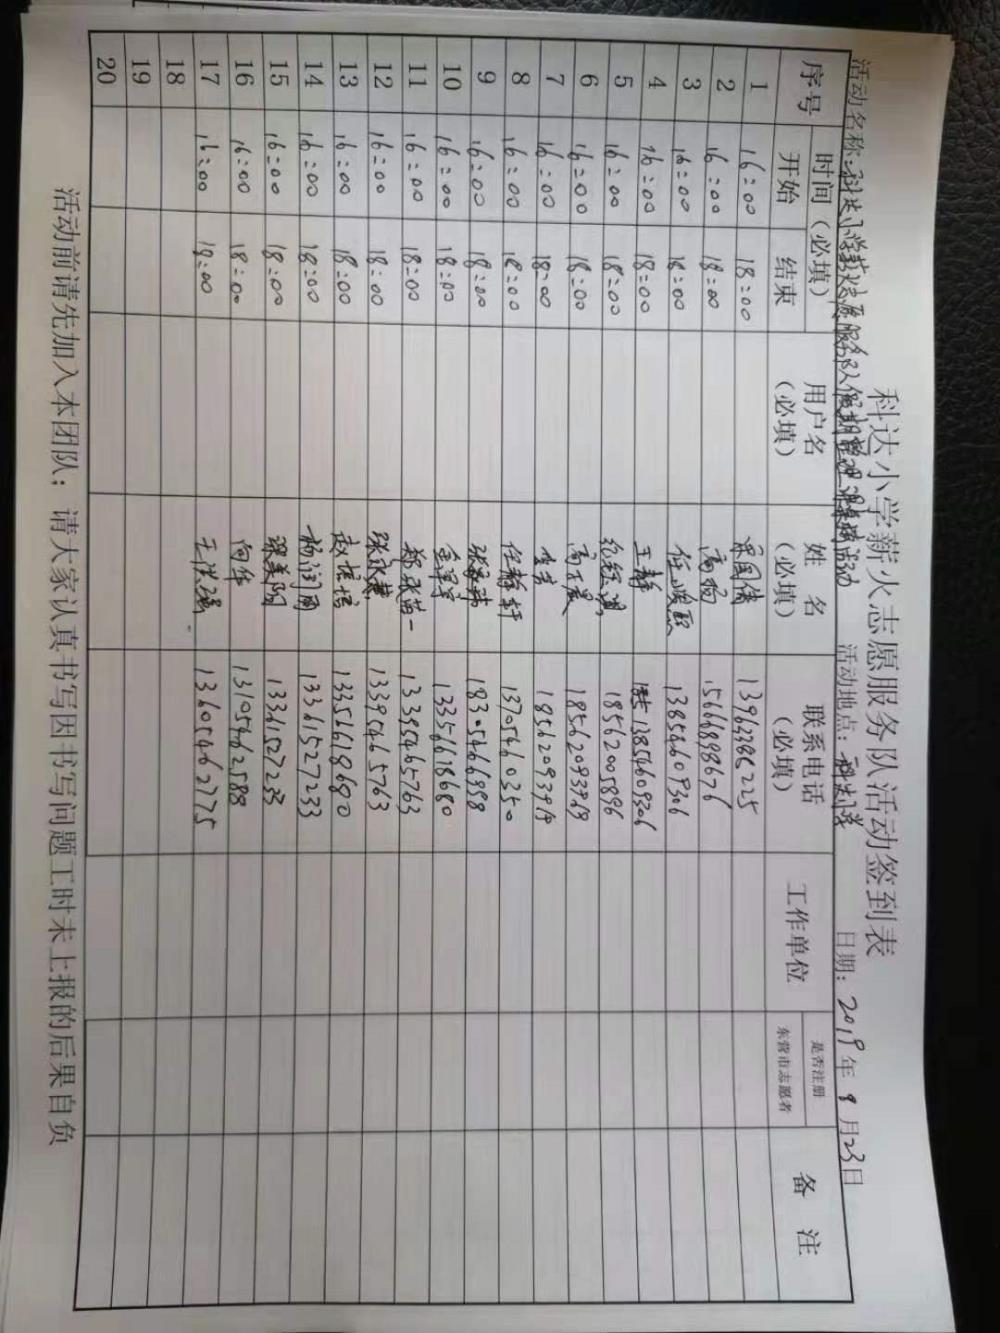 科达小学薪火志愿服务队活动签到表
活动名称：科达小学薪火志愿服务队假期整理活动 活动地点：科达小学 日期：2019年8月23日
序号 时间（必填） 用户名（必填） 姓名（必填） 联系电话（必填） 工作单位 是否注册东营市志愿者 备注
开始 结束
1 16:00 18:00
2 16:00 18:00 15666898676
3 16:00 18:00 13854609306
4 16:00 18:00 王静 13854609306
5 16:00 18:00 18562005896
6 16:00 18:00 18562093929
7 16:00 18:00
8 16:00 18:00 任静轩 13705460350
9 16:00 18:00 18305466998
10 16:00 18:00 13356618680
11 16:00 18:00 郑张苗一 13395465763
12 16:00 18:00 张秋慧 13395465763
13 16:00 18:00 13356618680
14 16:00 18:00 杨润雨 13361527233
15 16:00 18:00 13361527233
16 16:00 18:00 向华 13105462588
17 16:00 18:00 王洪强 13605462775
18
19
20
活动前请先加入本团队；请大家认真书写因书写问题工时未上报的后果自负